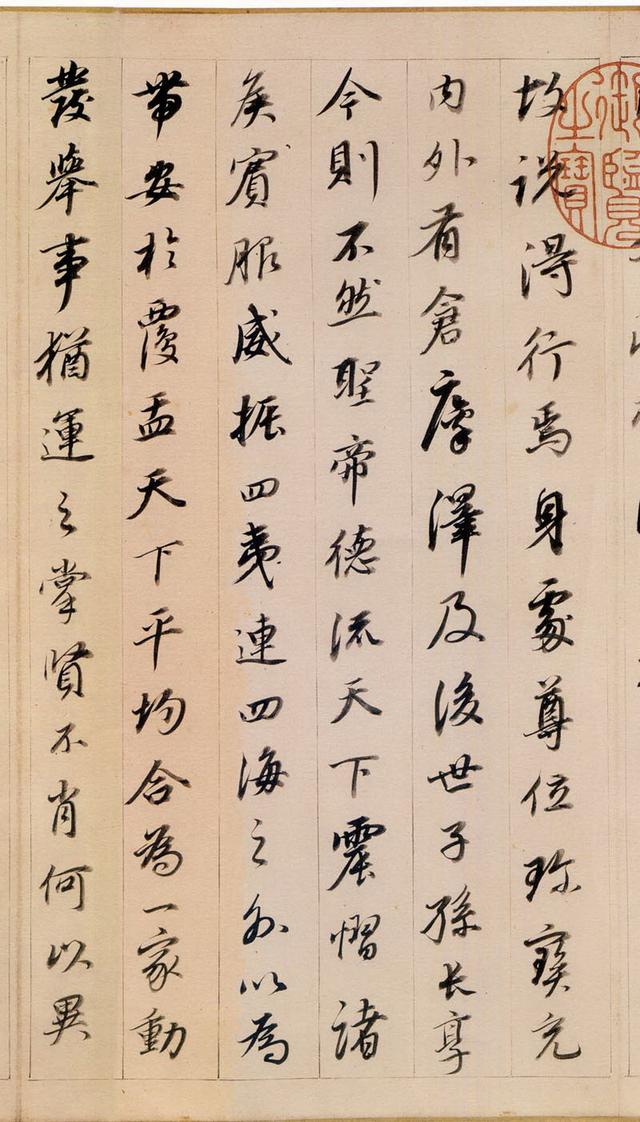 故說得行焉身處尊位珎寳充
内外有倉廩澤及後世子孫長享
今則不然聖帝德流天下震慴諸
矦賓服威振四夷連四海之外以為
帶安於覆盂天下平均合為一家動
發舉事猶運之掌賢不肖何以異
御覽之寶